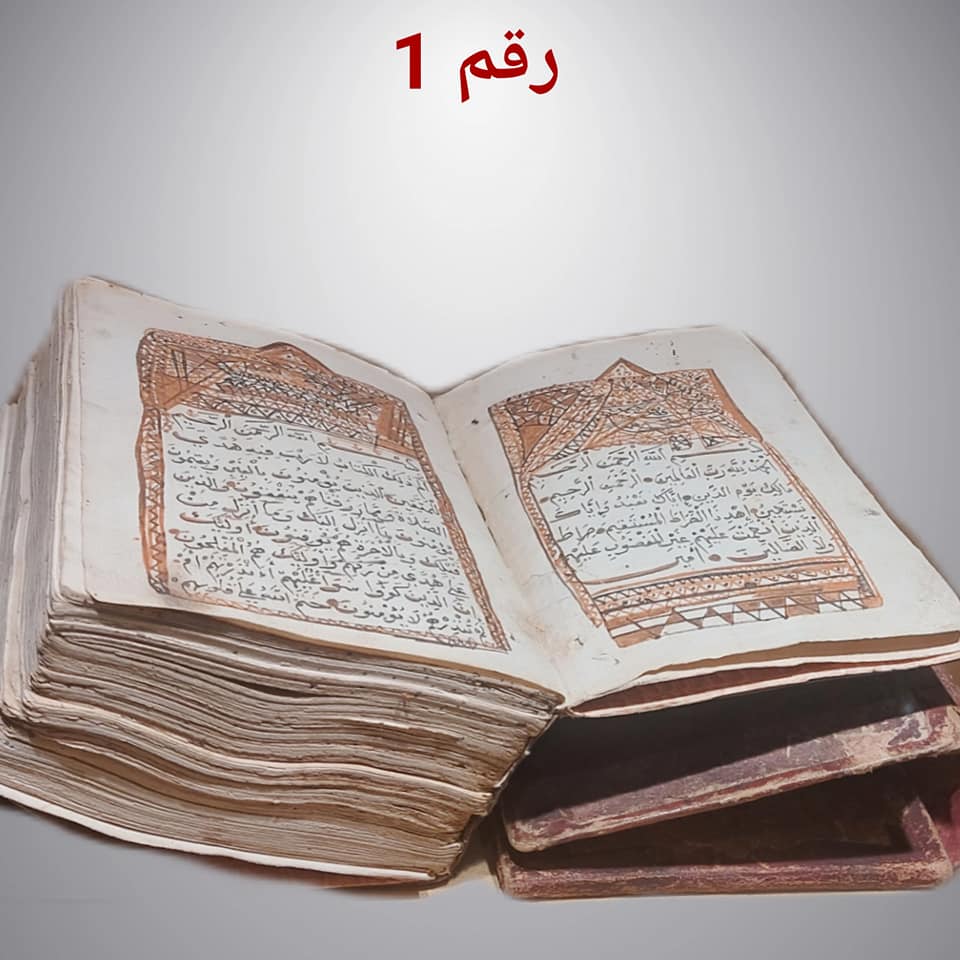 رقم 1
الله الرحمن الرحيم
الحمد لله رب العالمين الرحمن الرحيم
ملك يوم الدين إياك نعبد وإياك
نستعين اهدنا الصراط المستقيم صراط
الذين أنعمت عليهم غير المغضوب عليهم
ولا الضالين آمين
بسم الله الرحمن الرحيم
ذلك الكتاب لا ريب فيه هدى
للمتقين الذين يؤمنون بالغيب ويقيمون
الصلاة ومما رزقناهم ينفقون والذين
يؤمنون بما أنزل إليك وما أنزل من
قبلك وبالآخرة هم يوقنون أولئك
على هدى من ربهم وأولئك هم المفلحون
إن الذين كفروا سواء عليهم أأنذرتهم أم
لم تنذرهم لا يؤمنون ختم الله على قلوبهم